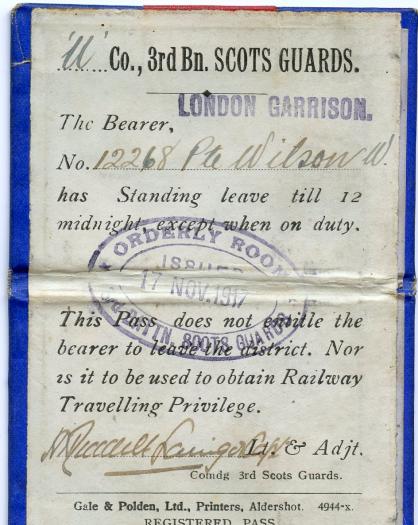 'U' Co., 3rd Bn. SCOTS GUARDS.
LONDON GARRISON.
The Bearer,
No. 12268 Pte Wilson W.
has Standing leave till 12
midnight, except when on duty.
ORDERLY ROOM
ISSUED
17 NOV. 1917
BTTN SCOTS GUARDS
This Pass does not entitle the
bearer to leave the district. Nor
is it to be used to obtain Railway
Travelling Privilege.
Lt. & Adjt.
Comdg 3rd Scots Guards.
Gale & Polden, Ltd., Printers, Aldershot. 4944-x.
REGISTERED PASS